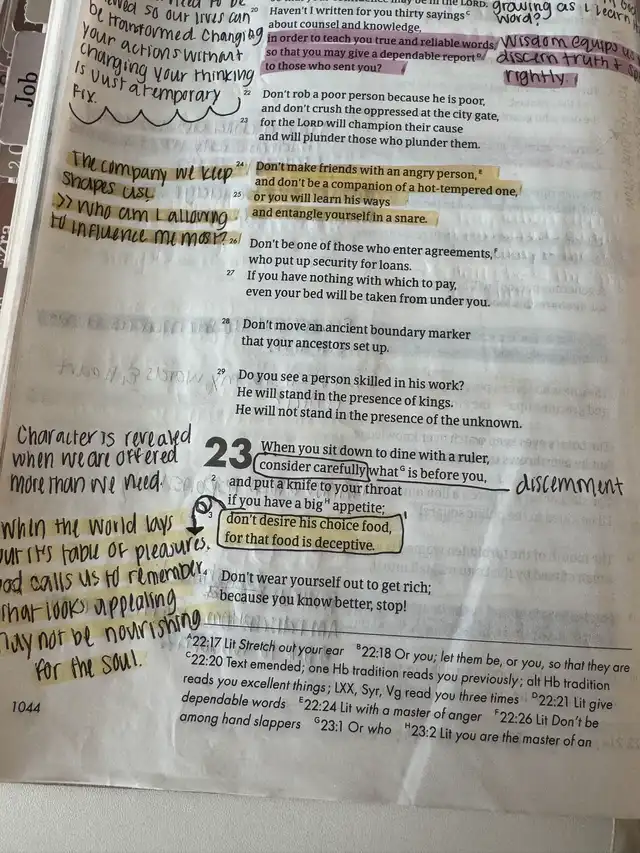 be transformed. Changing
your actions without
changing your thinking
is just a temporary
fix.
Job
growing as I learn
word?
20 Haven't I written for you thirty sayings C
about counsel and knowledge,
in order to teach you true and reliable words,
so that you may give a dependable report D
to those who sent you?
Wisdom equips us
discern truth +
rightly.
22 Don't rob a poor person because he is poor,
and don't crush the oppressed at the city gate,
23 for the LORD will champion their cause
and will plunder those who plunder them.
The company we keep
shapes us!
>> Who am I allowing
to influence me most?
24 Don't make friends with an angry person, E
and don't be a companion of a hot-tempered one,
25 or you will learn his ways
and entangle yourself in a snare.
26 Don't be one of those who enter agreements, F
who put up security for loans.
27 If you have nothing with which to pay,
even your bed will be taken from under you.
28 Don't move an ancient boundary marker
that your ancestors set up.
29 Do you see a person skilled in his work?
He will stand in the presence of kings.
He will not stand in the presence of the unknown.
Character is revealed
when we are offered
more than we need.
23 When you sit down to dine with a ruler,
consider carefully what G is before you,
2 and put a knife to your throat
if you have a big H appetite;
3 don't desire his choice food,
for that food is deceptive.
discernment
When the world lays
out it's table of pleasures,
God calls us to remember,
what looks appealing
may not be nourishing
for the soul.
4 Don't wear yourself out to get rich;
because you know better, stop!
A 22:17 Lit Stretch out your ear B 22:18 Or you; let them be, or you, so that they are
C 22:20 Text emended; one Hb tradition reads you previously; alt Hb tradition
reads you excellent things; LXX, Syr, Vg read you three times D 22:21 Lit give
dependable words E 22:24 Lit with a master of anger F 22:26 Lit Don't be
among hand slappers G 23:1 Or who H 23:2 Lit you are the master of an
1044